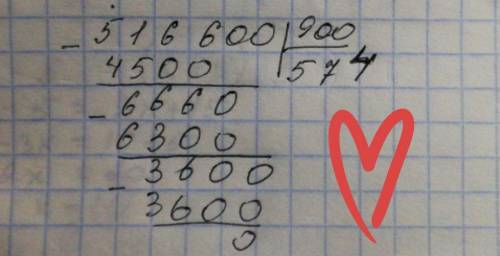 - 516600 | 900
4500 | 574
- 6660
6300
- 3600
3600
0